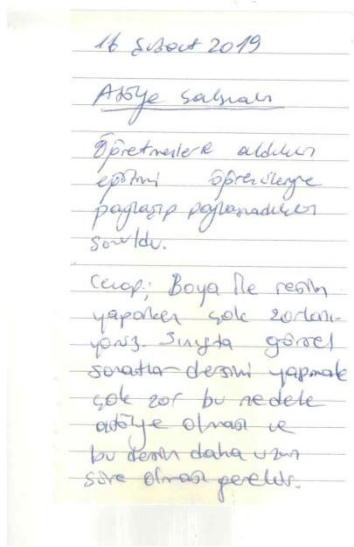 16 Şubat 2019
Atölye Çalışması
Öğretmenlere aldıkları
eğitimi öğrencileriyle
paylaşıp paylaşmadıkları
soruldu.
Cevap; Boya ile resim
yaparken çok zorlanı-
yoruz. Sınıfta görsel
sanatlar dersini yapmak
çok zor bu nedele
atölye olması ve
bu dersin daha uzun
süre olması gerekir.